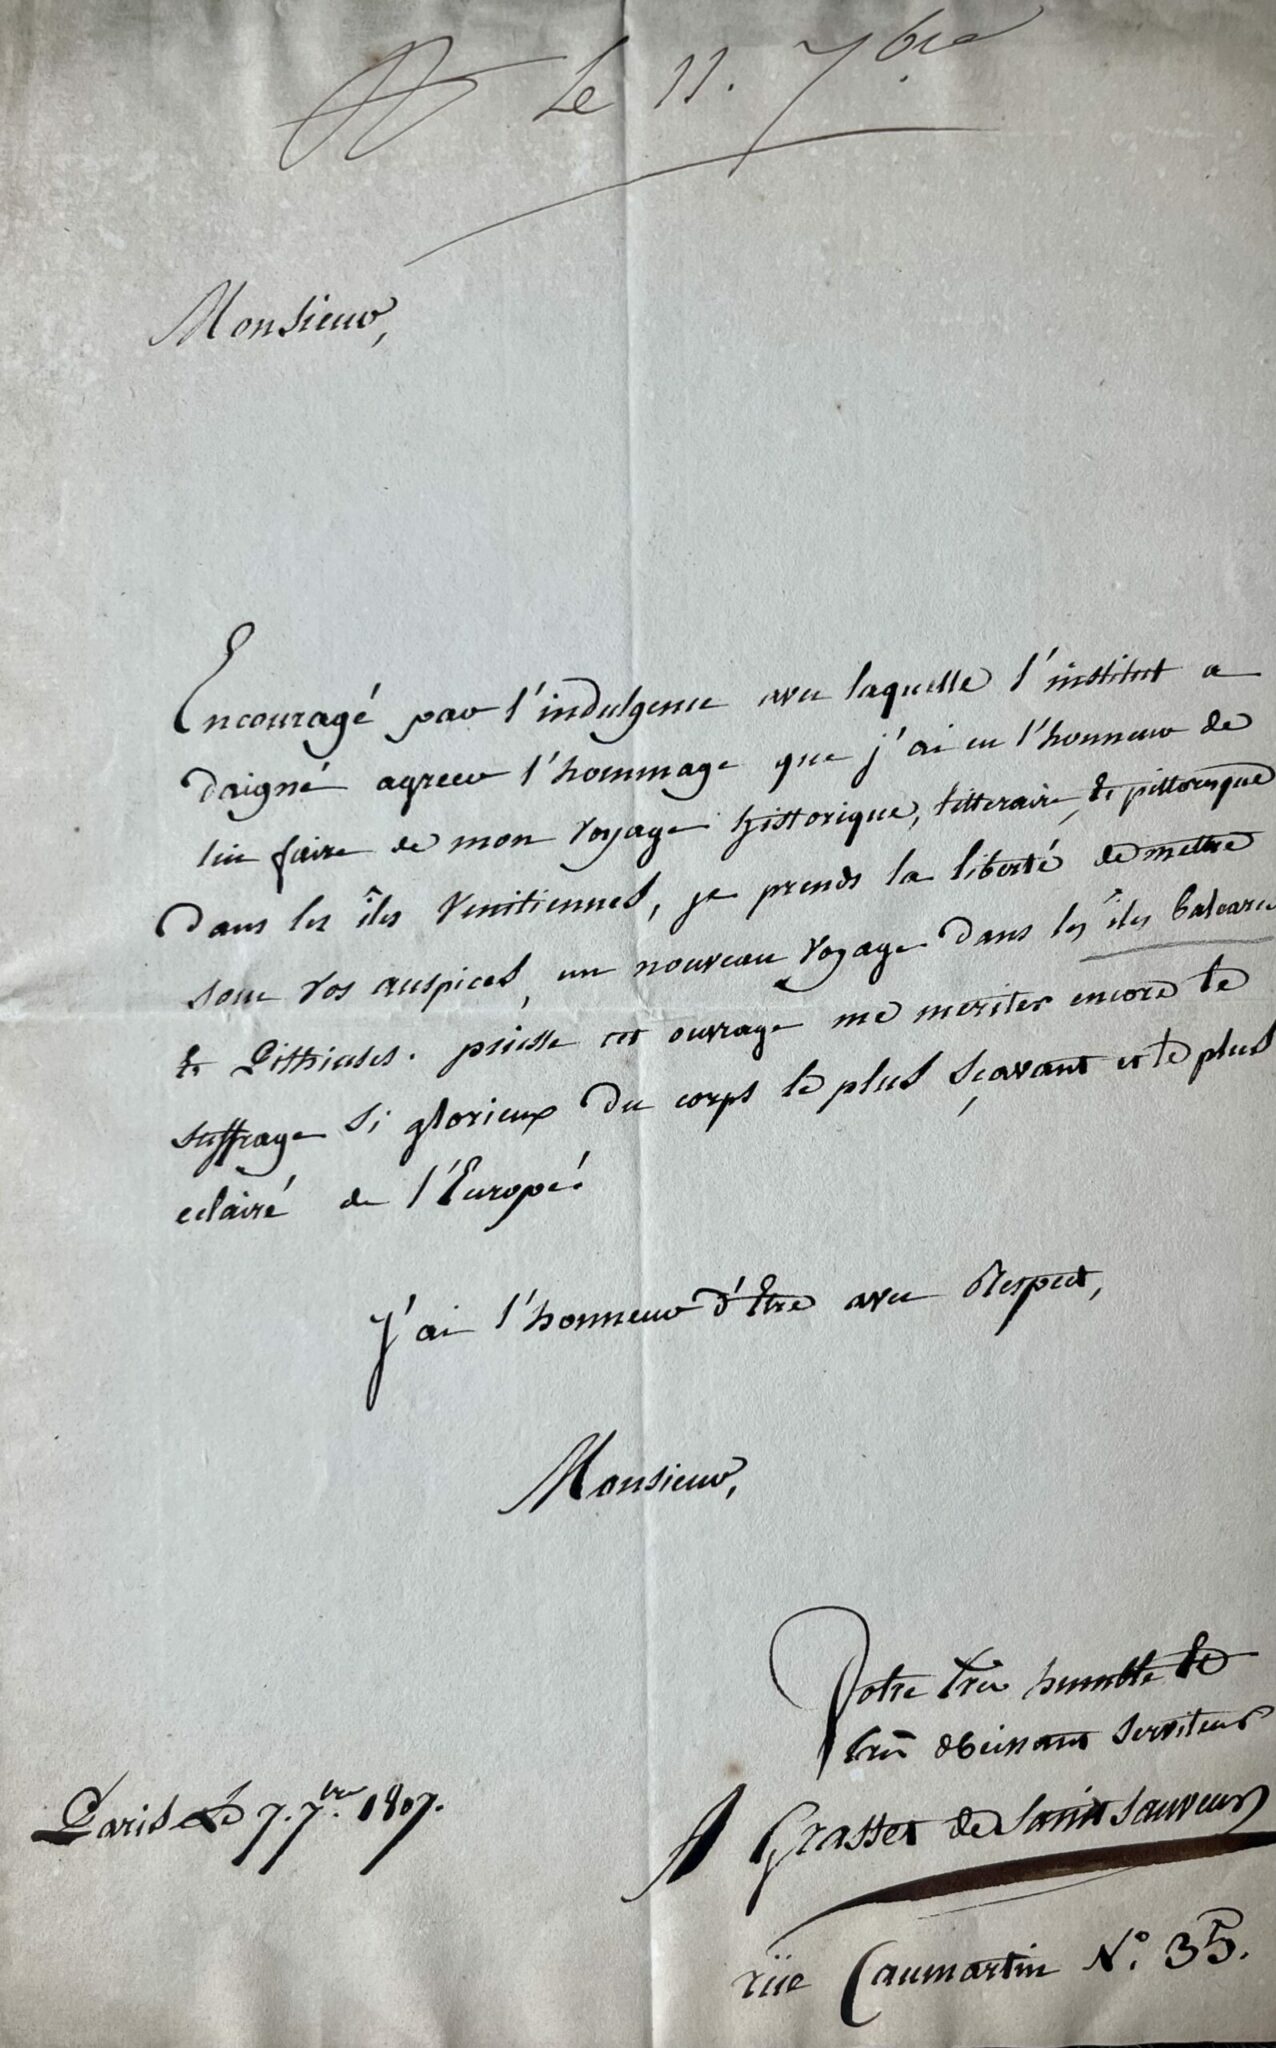 Le 11. 7bre
Monsieur,
Encouragé par l'indulgence avec laquelle l'institut a
daigné agreer l'hommage que j'ai eu l'honneur de
lui faire de mon voyage historique, litteraire, & pittoresque
dans les îles Venitiennes, je prends la liberté de mettre
sous vos auspices, un nouveau voyage dans les îles baleares
& Pithiuses. puisse cet ouvrage me meriter encore le
suffrage si glorieux du corps le plus sçavant et le plus
eclairé de l'Europe.
J'ai l'honneur d'Etre avec Respect,
Monsieur,
Votre très humble &
très obeissant serviteur
Paris le 7. 7bre 1807.
A Grasset de Saint Sauveur
rüe Caumartin N.° 35.